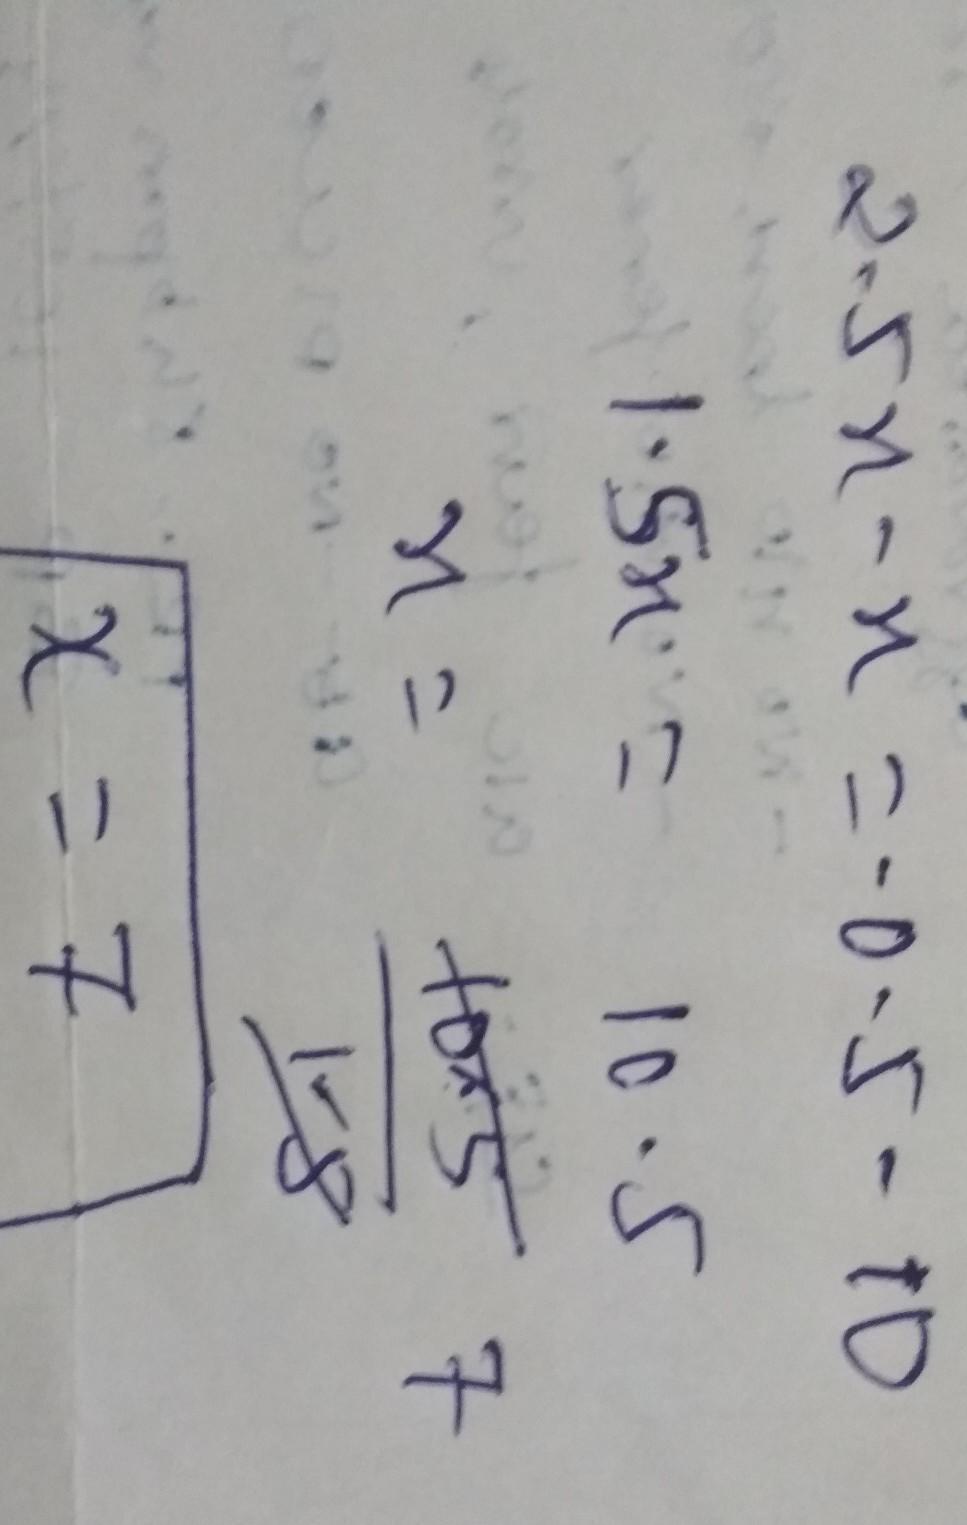 2.5x - x = -0.5 - 10
1.5x = 10.5
x = 10.5 7
1.5
x = 7